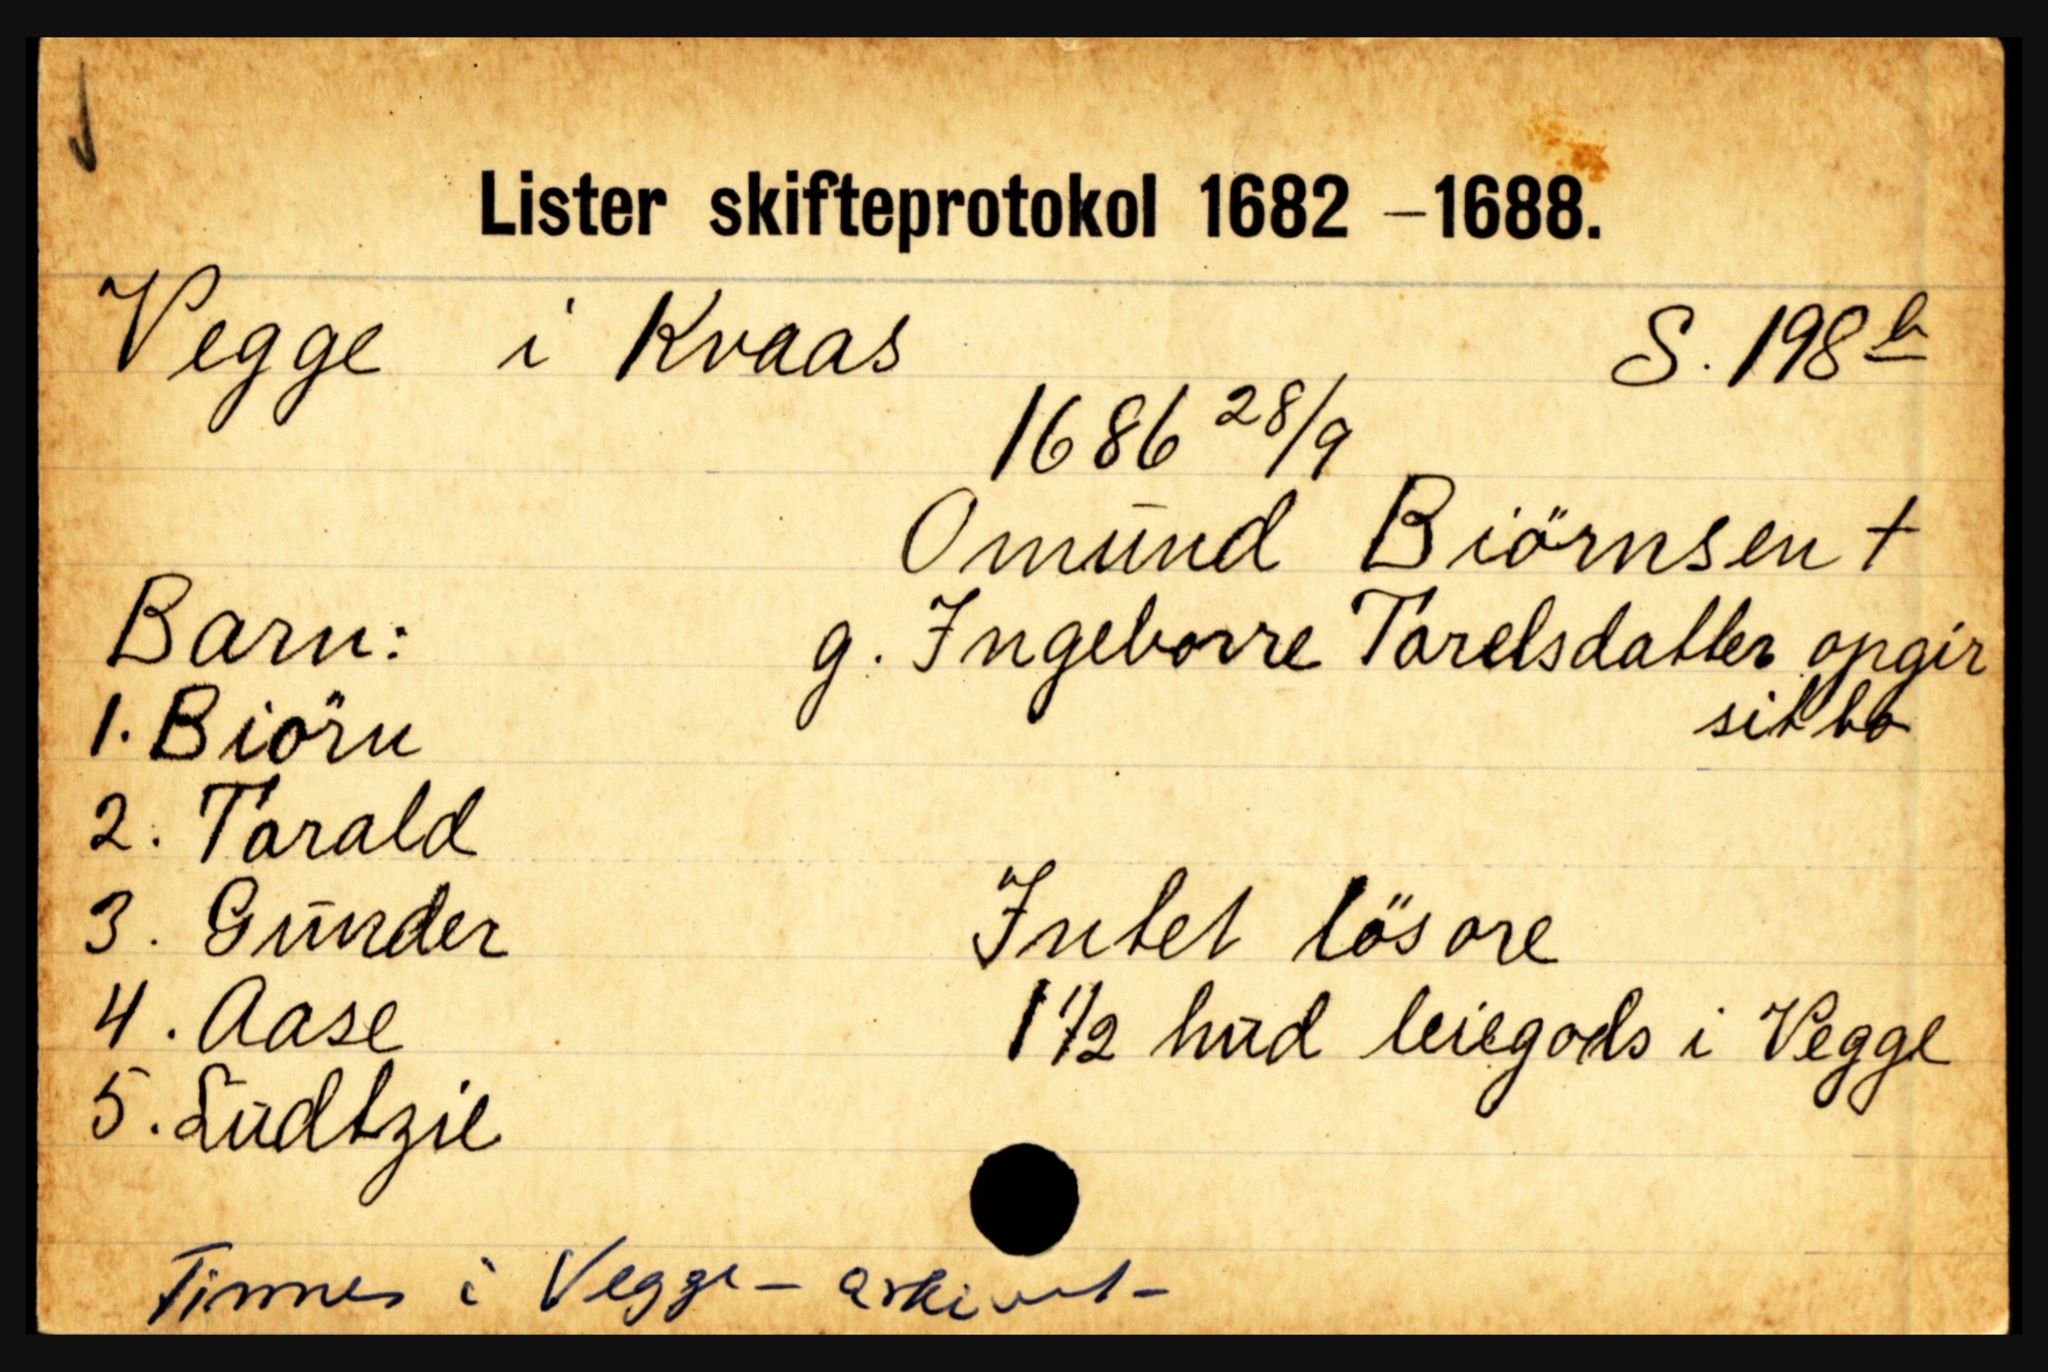 Lister skifteprotokol 1682 – 1688.
Vegge i Kvaas S. 198 b
1686 28/9
Omund Biörnsen †
Barn: g. Ingeborre Torelsdatter opgir
sit bo
1. Biörn
2. Torald
3. Gunder
Intet lösöre
4. Aase
1 1/2 hud leiegods i Vegge
5. Ludtzie
Finnes i Vegge-arkivet-